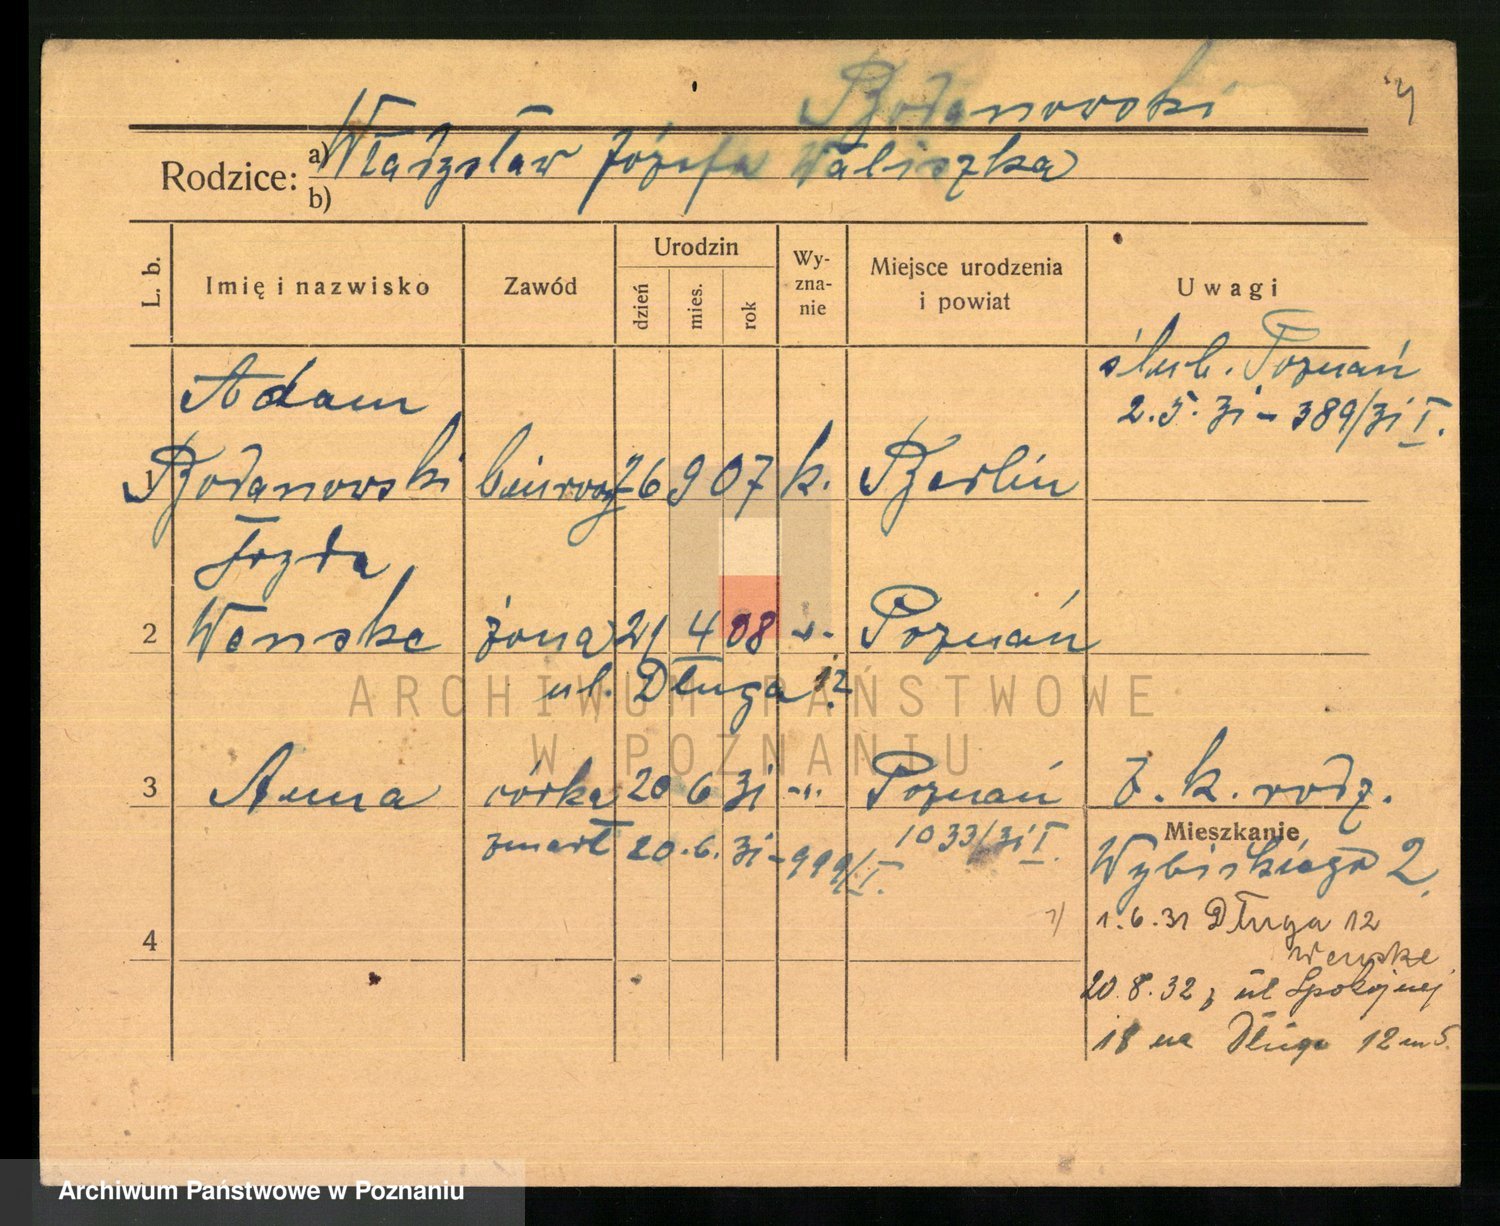 Bogdanowski
Rodzice: a) Władysław Józefa Waliszka
b)
L. b. Imię i nazwisko Zawód Urodzin dzień mies. rok Wy-zna-nie Miejsce urodzenia i powiat Uwagi
ślub. Poznań
2.5.31 - 389/31 I.
Adam
1 Bogdanowski biurowy 26 9 07 k. Berlin
Fryda
2 Wenske żona 21 4 08 -"- Poznań
ul. Długa 12
3 Anna córka 20 6 31 -"- Poznań z. k. rodz.
zmarł 20.6.31 - 999/I. 1033/31 I.
Mieszkanie
Wybickiego 2.
1.6.31 Długa 12
Wenske
4
20.8.32 z ul Spokojnej
18 na Długa 12 m 5.
ARCHIWUM PAŃSTWOWE
W POZNANIU
Archiwum Państwowe w Poznaniu